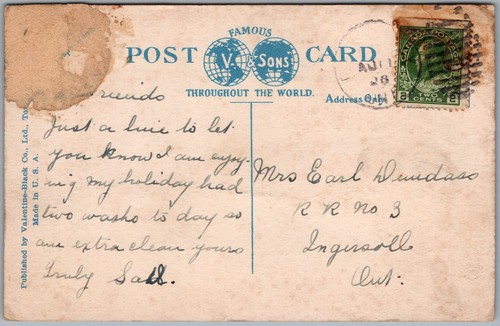 FAMOUS
POST CARD
V. & SONS
THROUGHOUT THE WORLD.
Address Only
Published by Valentine-Black Co., Ltd.,
Made in U. S. A.
CANADA POSTAGE
2 TWO 2
CENTS
Friends
Just a line to let
you know I am enjoy-
ing my holiday had
two washs to day so
am extra clean yours
truly
Mrs Earl Dundass
R R No 3
Ingersoll
Ont.